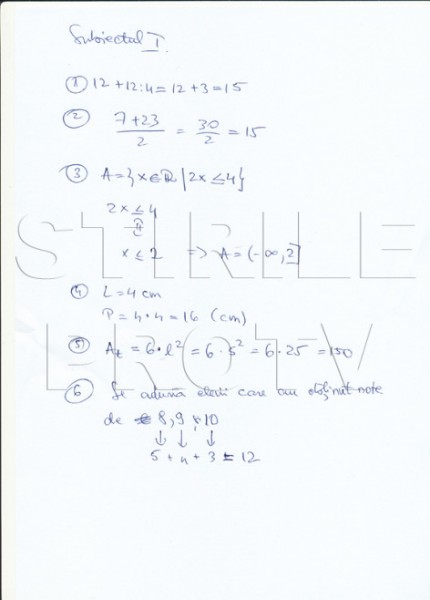 Subiectul I.
① 12 + 12 : 4 = 12 + 3 = 15
② (7 + 23)/2 = 30/2 = 15
③ A = {x ∈ ℝ | 2x ≤ 4}
2x ≤ 4
x ≤ 2 => A = (-∞, 2]
④ L = 4 cm
P = 4 · 4 = 16 (cm)
⑤ At = 6 · l² = 6 · 5² = 6 · 25 = 150
⑥ Se adună elevii care au obținut note
de 8, 9, 10
↓ ↓ ↓
5 + 4 + 3 = 12
STIRILE
PROTV